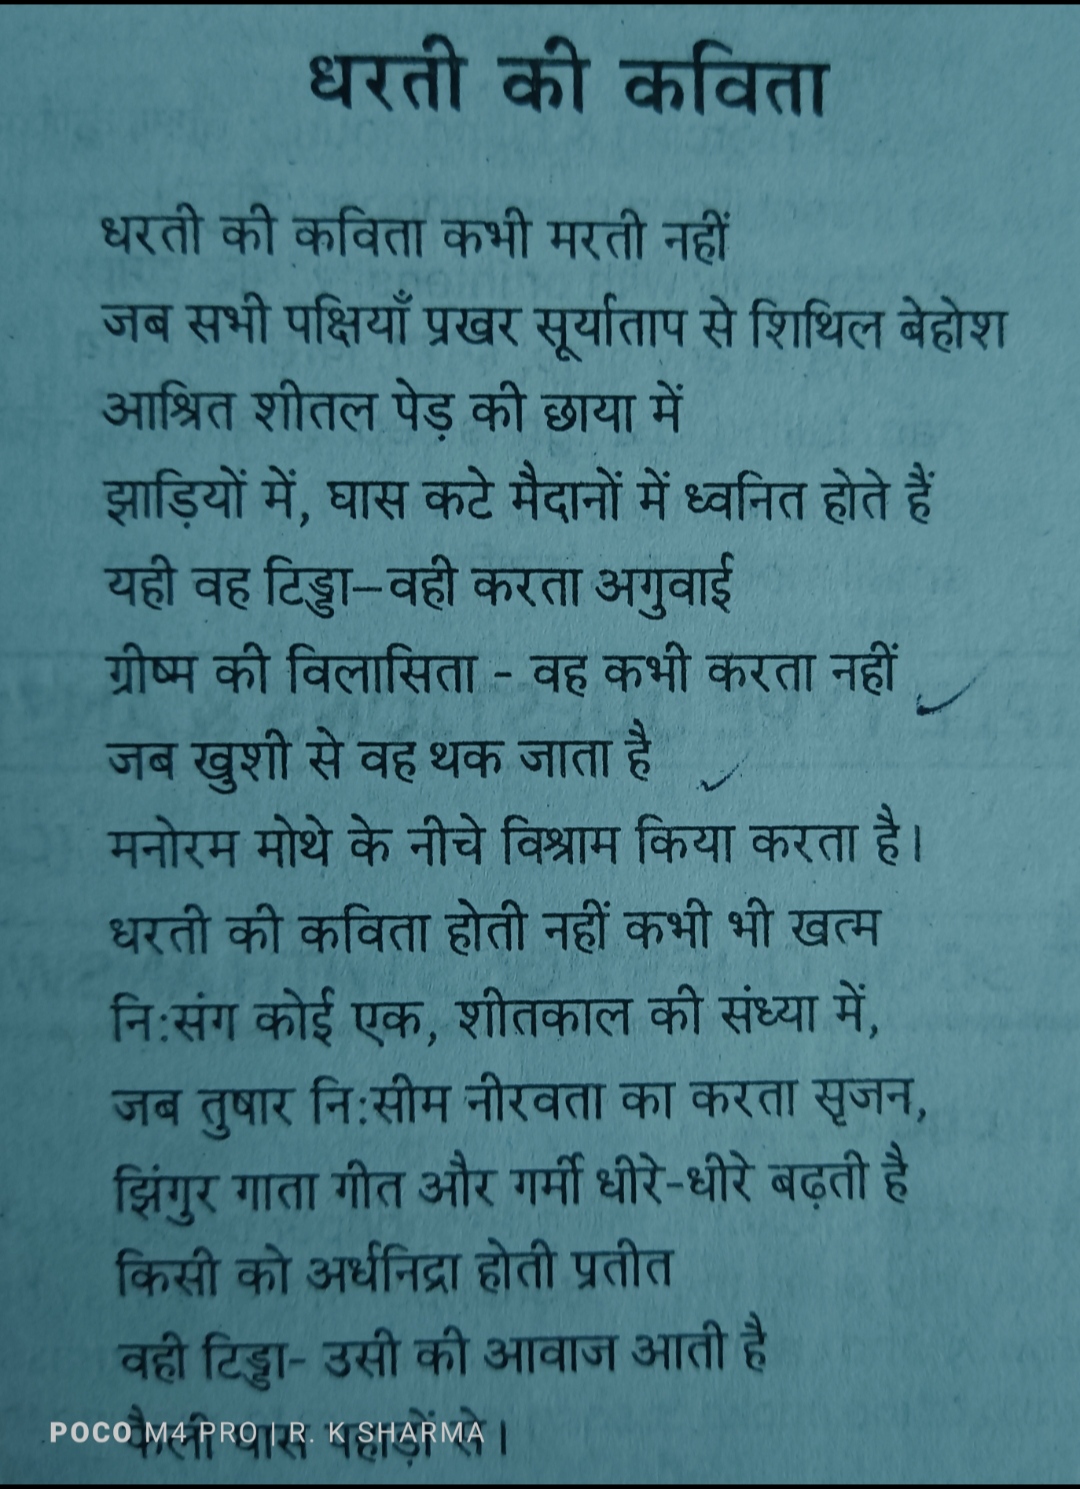 धरती की कविता
धरती की कविता कभी मरती नहीं
जब सभी पक्षियाँ प्रखर सूर्याताप से शिथिल बेहोश
आश्रित शीतल पेड़ की छाया में
झाड़ियों में, घास कटे मैदानों में ध्वनित होते हैं
यही वह टिड्डा–वही करता अगुवाई
ग्रीष्म की विलासिता - वह कभी करता नहीं
जब खुशी से वह थक जाता है
मनोरम मोथे के नीचे विश्राम किया करता है।
धरती की कविता होती नहीं कभी भी खत्म
नि:संग कोई एक, शीतकाल की संध्या में,
जब तुषार नि:सीम नीरवता का करता सृजन,
झिंगुर गाता गीत और गर्मी धीरे-धीरे बढ़ती है
किसी को अर्धनिद्रा होती प्रतीत
वही टिड्डा- उसी की आवाज आती है
फैली घास पहाड़ों से।
POCO M4 PRO | R. K SHARMA